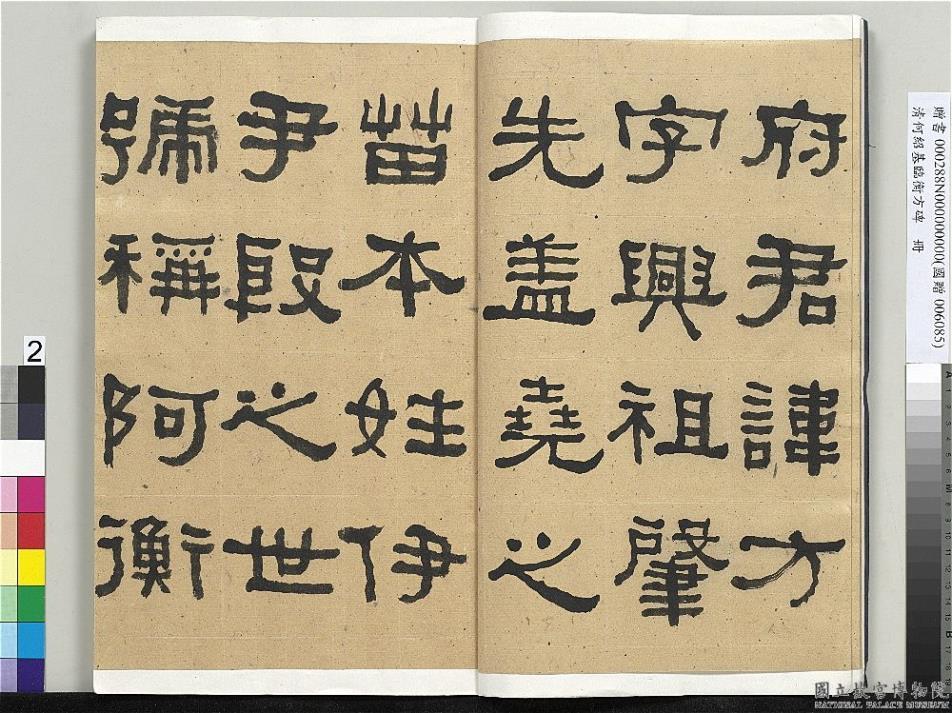 府君諱方
字興祖肇
先盖堯之
苗本姓伊
尹殷之世
號稱阿衡
贈書 000288N000000000(國贈 006085)
清何紹基臨衡方碑 冊
2
國立故宮博物院
NATIONAL PALACE MUSEUM